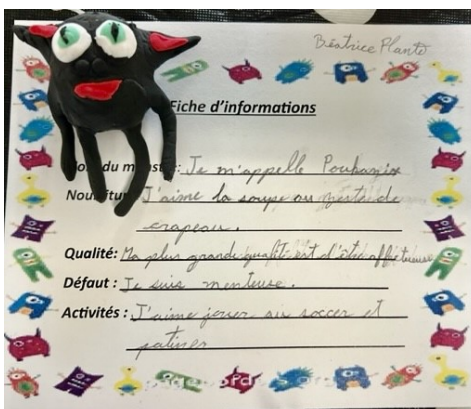 Béatrice Plante
Fiche d'informations
du m : Je m'appelle Poukanix
Nou : J'aime la soupe au de
crapeau.
Qualité: Ma plus grande qualité est d'être affectueuse
Défaut : Je suis menteuse.
Activités : J'aime jouer au soccer et
patiner